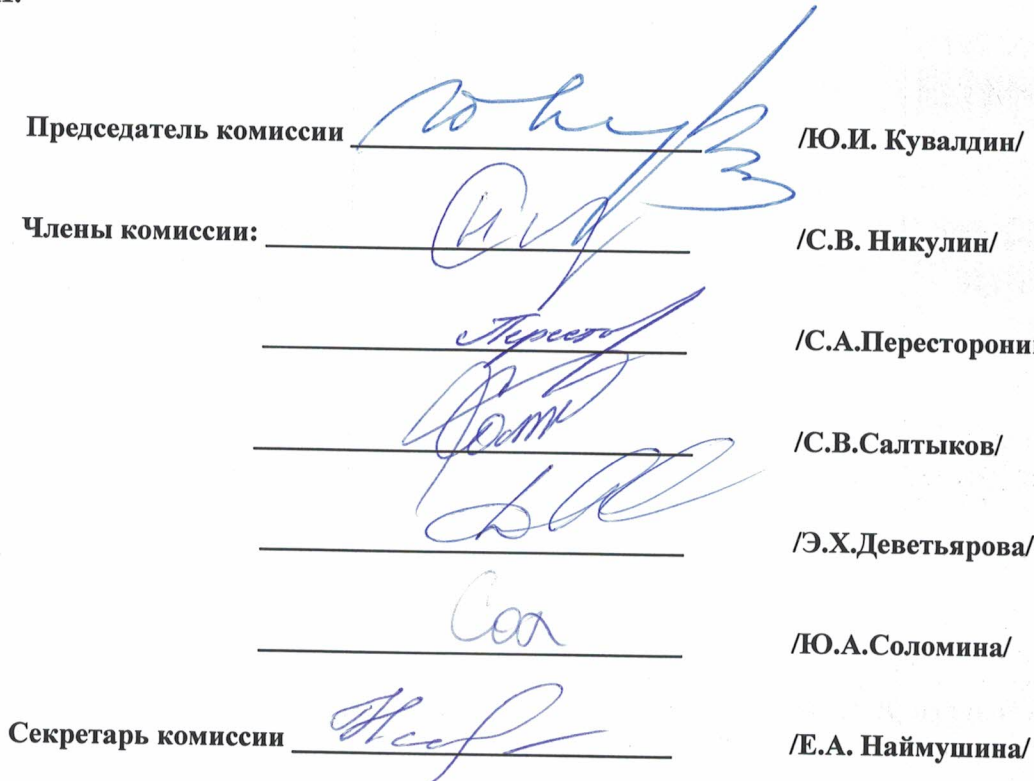 Председатель комиссии /Ю.И. Кувалдин/
Члены комиссии: /С.В. Никулин/
/С.А.Пересторони
/С.В.Салтыков/
/Э.Х.Деветьярова/
/Ю.А.Соломина/
Секретарь комиссии /Е.А. Наймушина/